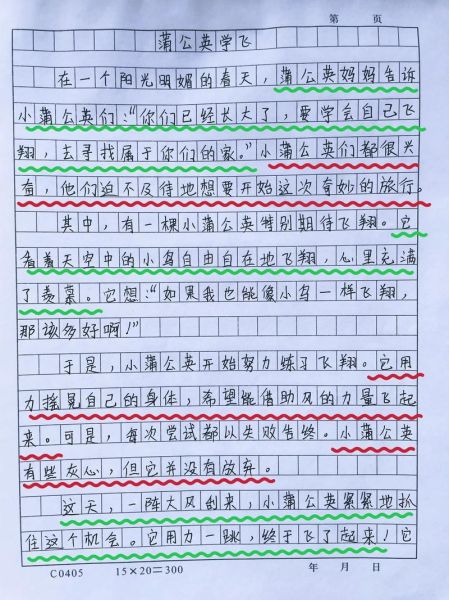 第 页
蒲公英学飞
在一个阳光明媚的春天，蒲公英妈妈告诉
小蒲公英们：“你们已经长大了，要学会自己飞
翔，去寻找属于你们的家。”小蒲公英们都很兴
奋，他们迫不及待地想要开始这次奇妙的旅行。
其中，有一棵小蒲公英特别期待飞翔。它
看着天空中的小鸟自由自在地飞翔，心里充满
了羡慕。它想：“如果我也能像小鸟一样飞翔，
那该多好啊！”
于是，小蒲公英开始努力练习飞翔。它用
力摇晃自己的身体，希望能借助风的力量飞起
来。可是，每次尝试都以失败告终。小蒲公英
有些灰心，但它并没有放弃。
这天，一阵大风刮来，小蒲公英紧紧地抓
住这个机会。它用力一跳，终于飞了起来！它
C0405 15×20=300 年 月 日